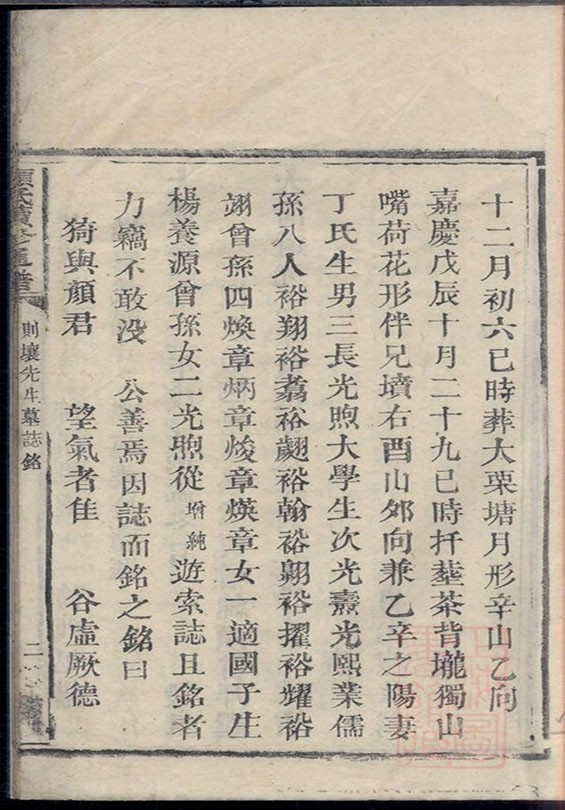 十二月初六巳時葬大栗塘月形辛山乙向
嘉慶戊辰十月二十九巳時扦塟茶背壠獨山
嘴荷花形伴兄墳右酉山夘向兼乙辛之陽妻
丁氏生男三長光煦大學生次光燾光熙業儒
孫八人裕翔裕翥裕翽裕翰裕翾裕擢裕耀裕
翊曾孫四煥章炳章焌章煐章女一適國子生
楊養源曾孫女二光煦從增純遊索誌且銘者
力竊不敢没 公善焉因誌而銘之銘曰
猗與顏君 望氣者隹 谷虛厥德
則壤先生墓誌銘
二